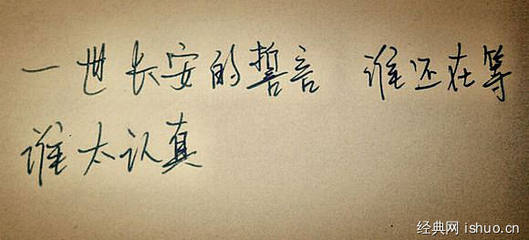 一世长安的誓言 谁还在等
谁太认真
经典网 ishuo.cn